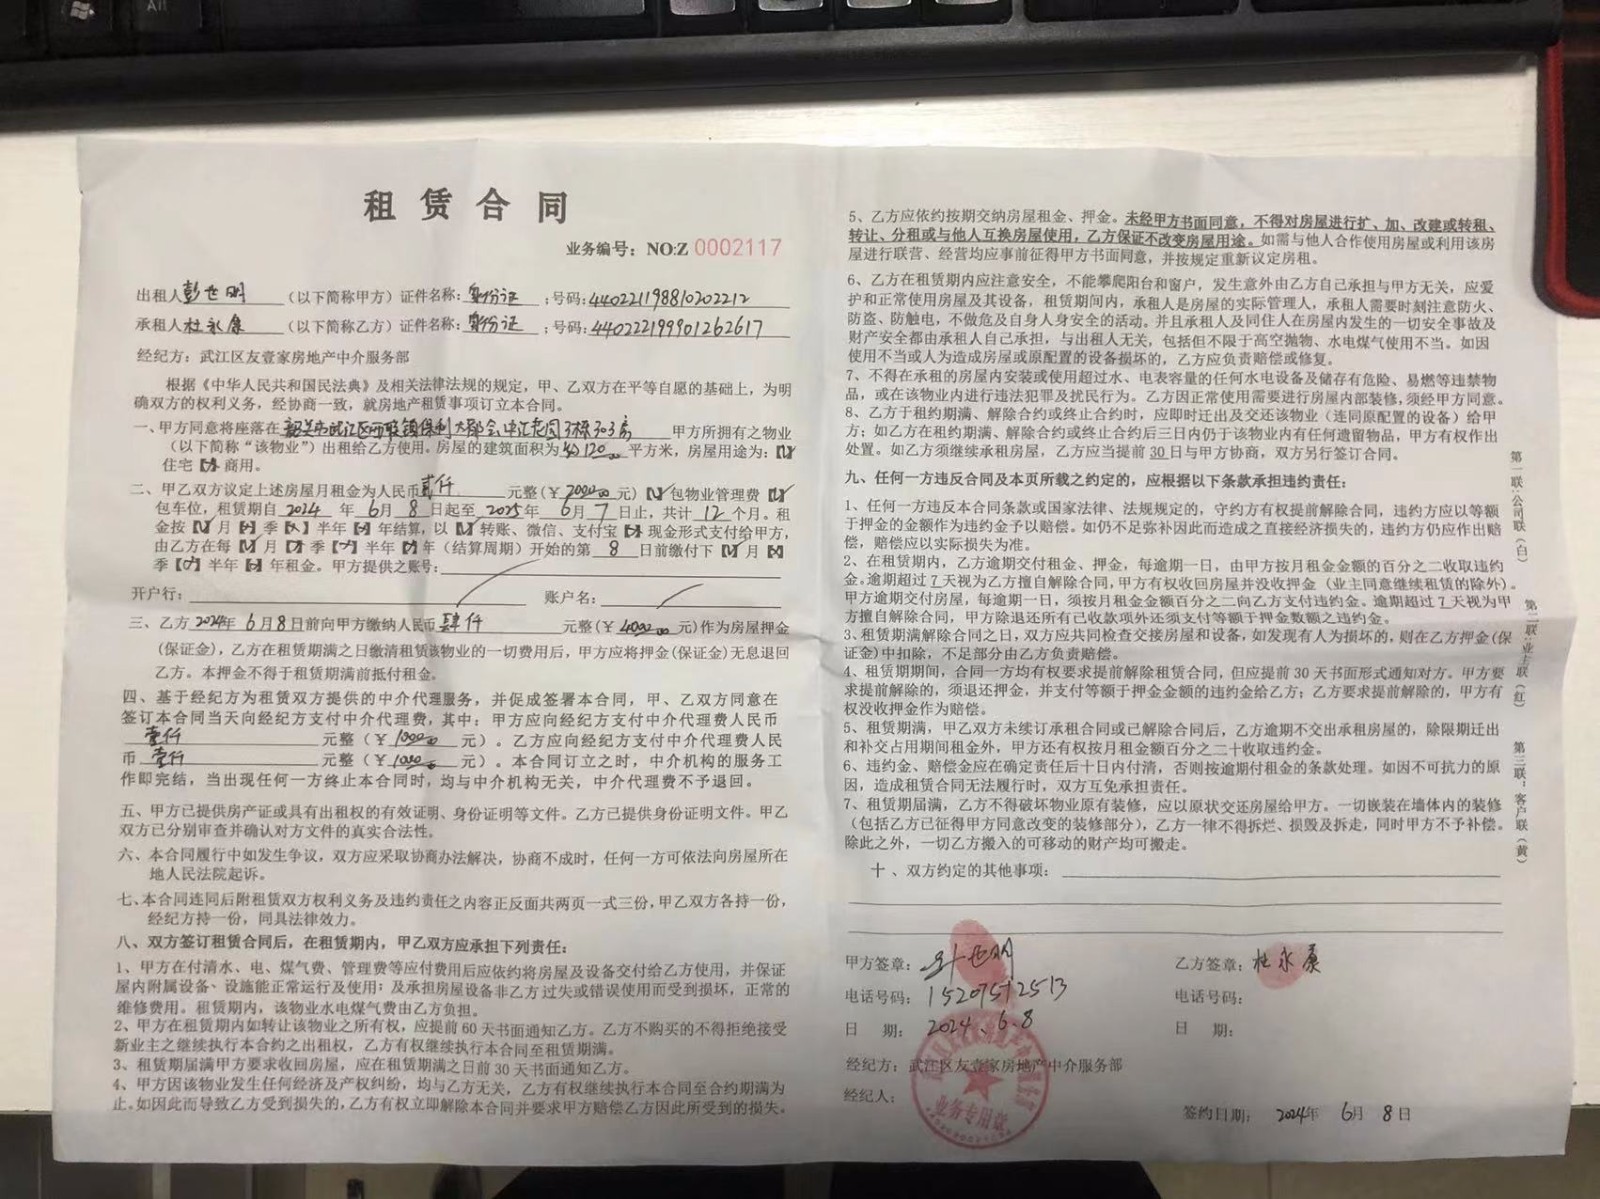 租赁合同
业务编号：NO:Z 0002117
出租人彭世明（以下简称甲方）证件名称：身份证；号码：440221198810202212
承租人杜永康（以下简称乙方）证件名称：身份证；号码：440222199901262617
经纪方：武江区友壹家房地产中介服务部
根据《中华人民共和国民法典》及相关法律法规的规定，甲、乙双方在平等自愿的基础上，为明
确双方的权利义务，经协商一致，就房地产租赁事项订立本合同。
一、甲方同意将座落在韶关市武江区西联镇保利大都会中汇花园 303房 甲方所拥有之物业
（以下简称“该物业”）出租给乙方使用。房屋的建筑面积为 120 平方米，房屋用途为：【✓】
住宅【】商用。
二、甲乙双方议定上述房屋月租金为人民币贰仟元整（￥2000.00元）【】包物业管理费【】
包车位，租赁期自2024年6月8日起至2025年6月7日止，共计12个月。租
金按【】月【】季【】半年【】年结算，以【】转账、微信、支付宝【】现金形式支付给甲方，
由乙方在每【】月【】季【】半年【】年（结算周期）开始的第8日前缴付下【】月【】
季【】半年【】年租金。甲方提供之账号：
开户行： 账户名：
三、乙方2024年6月8日前向甲方缴纳人民币肆仟元整（￥4000.00元）作为房屋押金
（保证金），乙方在租赁期满之日缴清租赁该物业的一切费用后，甲方应将押金（保证金）无息退回
乙方。本押金不得于租赁期满前抵付租金。
四、基于经纪方为租赁双方提供的中介代理服务，并促成签署本合同，甲、乙双方同意在
签订本合同当天向经纪方支付中介代理费，其中：甲方应向经纪方支付中介代理费人民币
壹仟元整（￥1000.00元）。乙方应向经纪方支付中介代理费人民
币壹仟元整（￥1000.00元）。本合同订立之时，中介机构的服务工
作即完结，当出现任何一方终止本合同时，均与中介机构无关，中介代理费不予退回。
五、甲方已提供房产证或具有出租权的有效证明、身份证明等文件。乙方已提供身份证明文件。甲乙
双方已分别审查并确认对方文件的真实合法性。
六、本合同履行中如发生争议，双方应采取协商办法解决，协商不成时，任何一方可依法向房屋所在
地人民法院起诉。
七、本合同连同后附租赁双方权利义务及违约责任之内容正反面共两页一式三份，甲乙双方各持一份，
经纪方持一份，同具法律效力。
八、双方签订租赁合同后，在租赁期内，甲乙双方应承担下列责任：
1、甲方在付清水、电、煤气费、管理费等应付费用后应依约将房屋及设备交付给乙方使用，并保证
屋内附属设备、设施能正常运行及使用；及承担房屋设备非乙方过失或错误使用而受到损坏，正常的
维修费用。租赁期内，该物业水电煤气费由乙方负担。
2、甲方在租赁期内如转让该物业之所有权，应提前60天书面通知乙方。乙方不购买的不得拒绝接受
新业主之继续执行本合约之出租权，乙方有权继续执行本合同至租赁期满。
3、租赁期届满甲方要求收回房屋，应在租赁期满之日前30天书面通知乙方。
4、甲方因该物业发生任何经济及产权纠纷，均与乙方无关，乙方有权继续执行本合同至合约期满为
止。如因此而导致乙方受到损失的，乙方有权立即解除本合同并要求甲方赔偿乙方因此所受到的损失。
5、乙方应依约按期交纳房屋租金、押金。未经甲方书面同意，不得对房屋进行扩、加、改建或转租、
转让、分租或与他人互换房屋使用，乙方保证不改变房屋用途。如需与他人合作使用房屋或利用该房
屋进行联营、经营均应事前征得甲方书面同意，并按规定重新议定房租。
6、乙方在租赁期内应注意安全，不能攀爬阳台和窗户，发生意外由乙方自己承担与甲方无关，应爱
护和正常使用房屋及其设备，租赁期间内，承租人是房屋的实际管理人，承租人需要时刻注意防火、
防盗、防触电，不做危及自身人身安全的活动。并且承租人及同住人在房屋内发生的一切安全事故及
财产安全都由承租人自己承担，与出租人无关，包括但不限于高空抛物、水电煤气使用不当。如因
使用不当或人为造成房屋或原配置的设备损坏的，乙方应负责赔偿或修复。
7、不得在承租的房屋内安装或使用超过水、电表容量的任何水电设备及储存有危险、易燃等违禁物
品，或在该物业内进行违法犯罪及扰民行为。乙方因正常使用需要进行房屋内部装修，须经甲方同意。
8、乙方于租约期满、解除合约或终止合约时，应即时迁出及交还该物业（连同原配置的设备）给甲
方；如乙方在租约期满、解除合约或终止合约后三日内仍于该物业内有任何遗留物品，甲方有权作出
处置。如乙方须继续承租房屋，乙方应当提前30日与甲方协商，双方另行签订合同。
九、任何一方违反合同及本页所载之约定的，应根据以下条款承担违约责任：
1、任何一方违反本合同条款或国家法律、法规规定的，守约方有权提前解除合同，违约方应以等额
于押金的金额作为违约金予以赔偿。如仍不足弥补因此而造成之直接经济损失的，违约方仍应作出赔
偿，赔偿应以实际损失为准。
2、在租赁期内，乙方逾期交付租金、押金，每逾期一日，由甲方按月租金金额的百分之二收取违约
金。逾期超过7天视为乙方擅自解除合同，甲方有权收回房屋并没收押金（业主同意继续租赁的除外）。
甲方逾期交付房屋，每逾期一日，须按月租金金额百分之二向乙方支付违约金。逾期超过7天视为甲
方擅自解除合同，甲方除退还所有已收款项外还须支付等额于押金数额之违约金。
3、租赁期满解除合同之日，双方应共同检查交接房屋和设备，如发现有人为损坏的，则在乙方押金（保
证金）中扣除，不足部分由乙方负责赔偿。
4、租赁期期间，合同一方均有权要求提前解除租赁合同，但应提前30天书面形式通知对方。甲方要
求提前解除的，须退还押金，并支付等额于押金金额的违约金给乙方；乙方要求提前解除的，甲方有
权没收押金作为赔偿。
5、租赁期满，甲乙双方未续订承租合同或已解除合同后，乙方逾期不交出承租房屋的，除限期迁出
和补交占用期间租金外，甲方还有权按月租金额百分之二十收取违约金。
6、违约金、赔偿金应在确定责任后十日内付清，否则按逾期付租金的条款处理。如因不可抗力的原
因，造成租赁合同无法履行时，双方互免承担责任。
7、租赁期届满，乙方不得破坏物业原有装修，应以原状交还房屋给甲方。一切嵌装在墙体内的装修
（包括乙方已征得甲方同意改变的装修部分），乙方一律不得拆烂、损毁及拆走，同时甲方不予补偿。
除此之外，一切乙方搬入的可移动的财产均可搬走。
十、双方约定的其他事项：
甲方签章：彭世明
乙方签章：杜永康
电话号码：15207512513
电话号码：
日 期：2024.6.8
日 期：
经纪方：武江区友壹家房地产中介服务部
经纪人：
业务专用章
签约日期：2024年6月8日
第一联：公司联（白）
第二联：业主联（红）
第三联：客户联（黄）